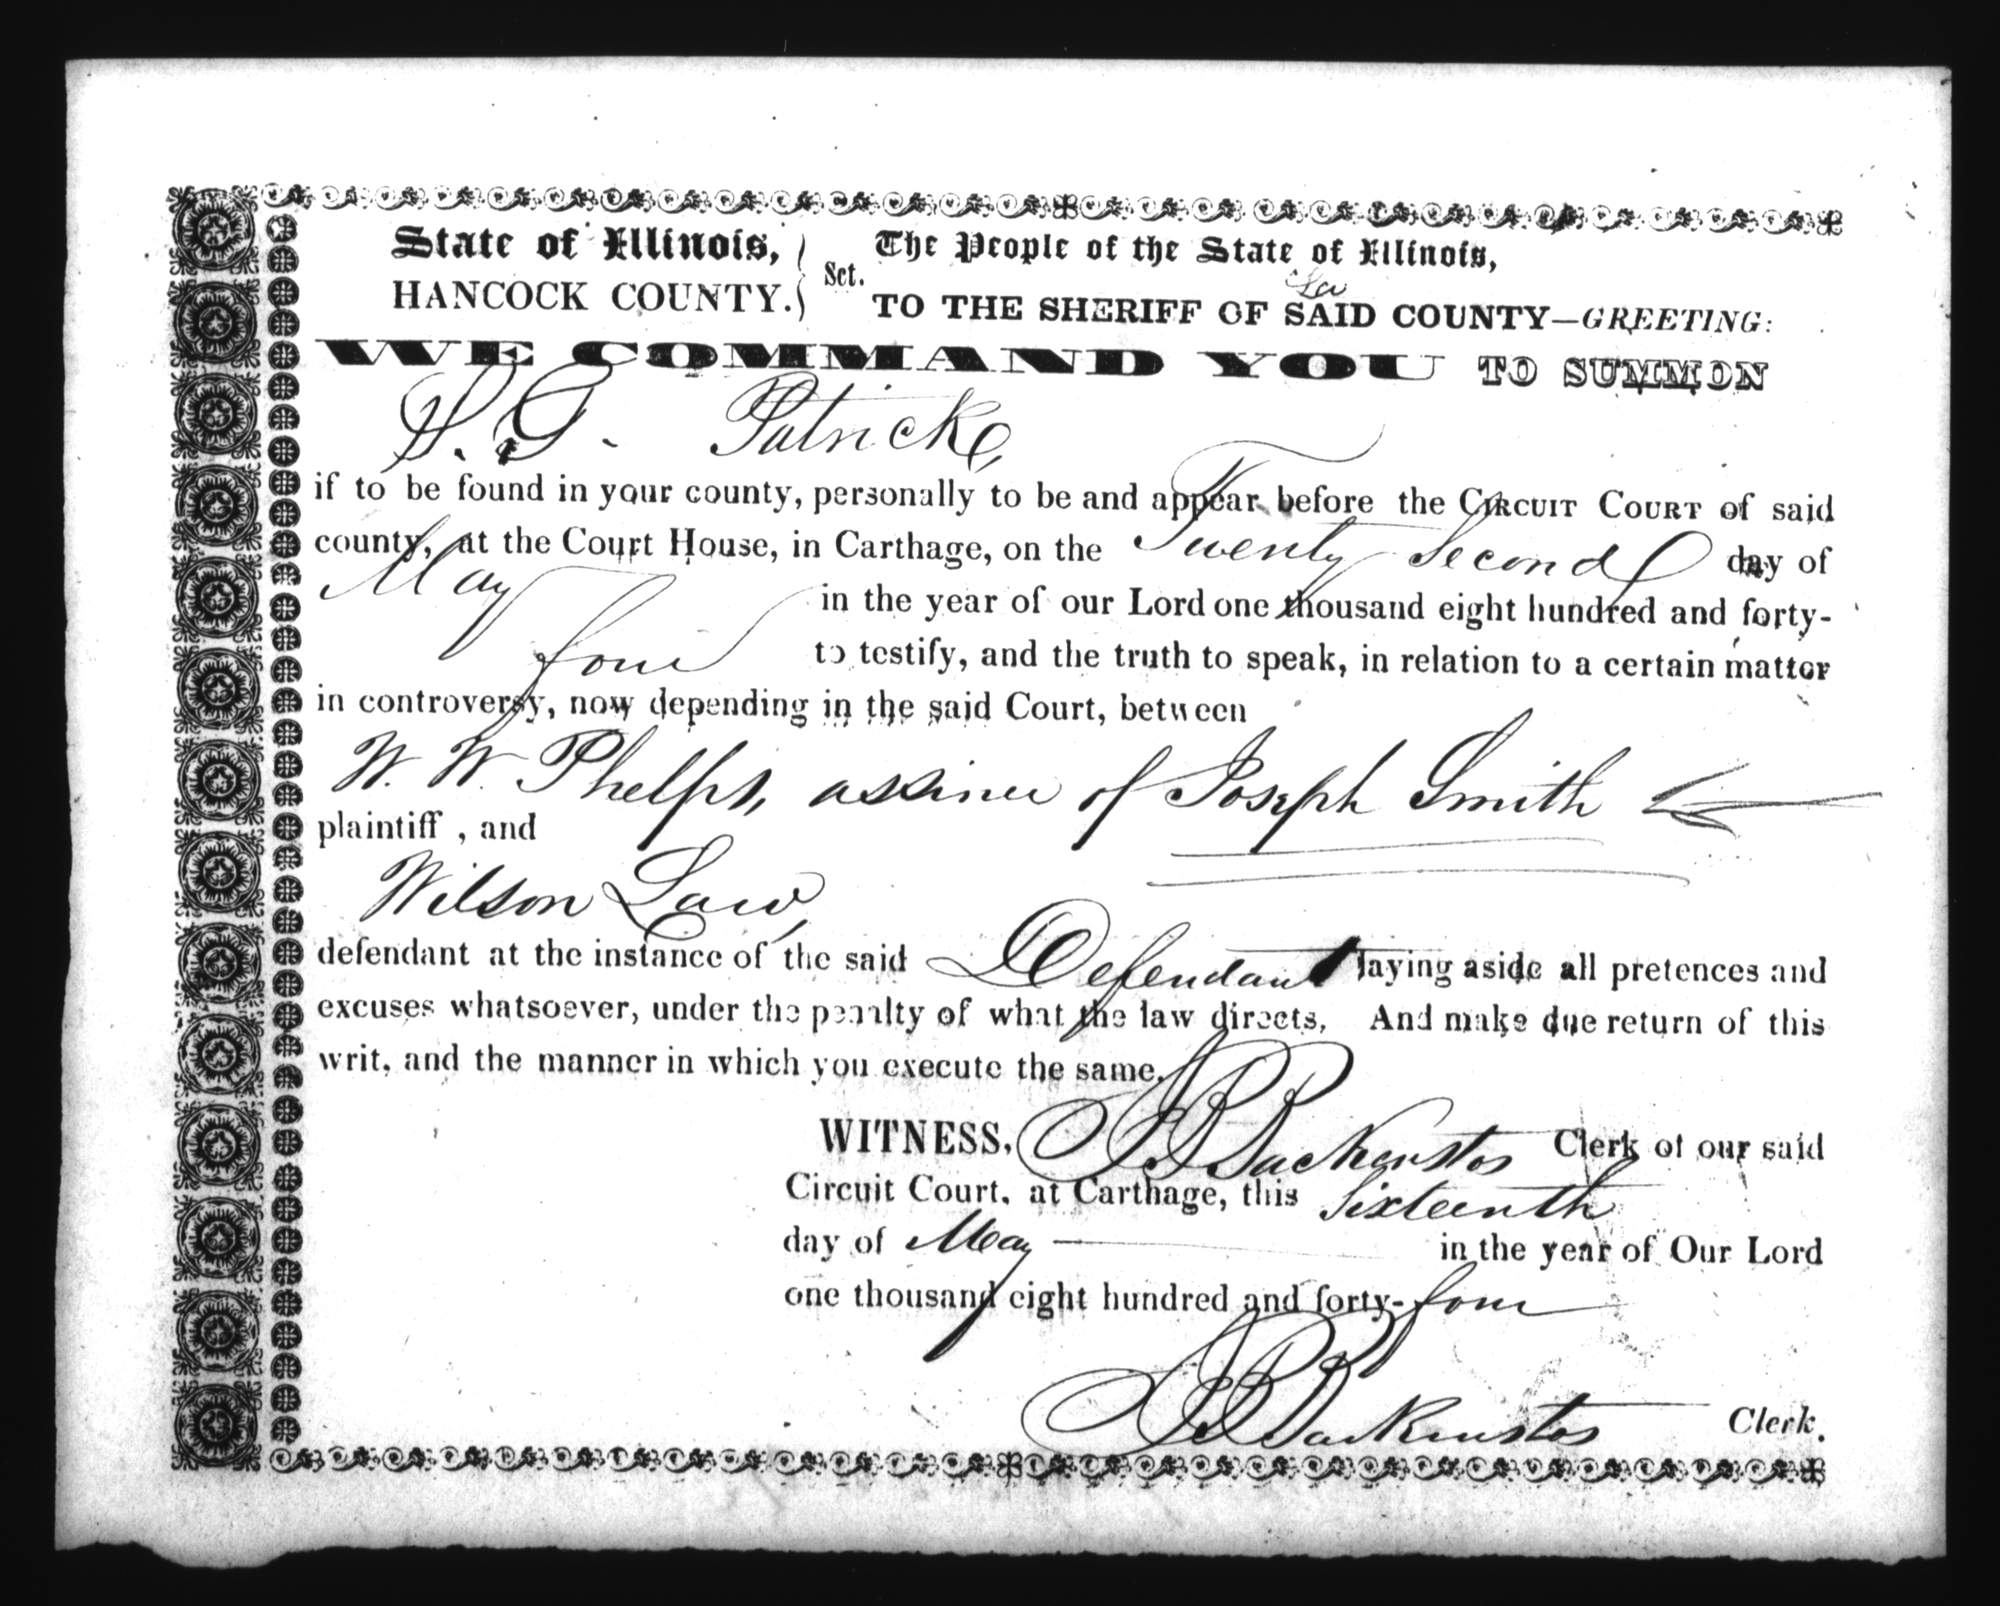 State of Illinois, } Sct. The People of the State of Illinois,
HANCOCK COUNTY. } TO THE SHERIFF OF SAID COUNTY—GREETING:
WE COMMAND YOU TO SUMMON
S. G. Patrick,
if to be found in your county, personally to be and appear before the CIRCUIT COURT of said
county, at the Court House, in Carthage, on the Twenty Second day of
May in the year of our Lord one thousand eight hundred and forty-
four to testify, and the truth to speak, in relation to a certain matter
in controversy, now depending in the said Court, between
W. W. Phelps, assinee of Joseph Smith
plaintiff, and
Wilson Law,
defendant at the instance of the said Defendant laying aside all pretences and
excuses whatsoever, under the penalty of what the law directs. And make due return of this
writ, and the manner in which you execute the same.
WITNESS, J B Backenstos Clerk of our said
Circuit Court, at Carthage, this Sixteenth
day of May in the year of Our Lord
one thousand eight hundred and forty-four
J B Backenstos Clerk.